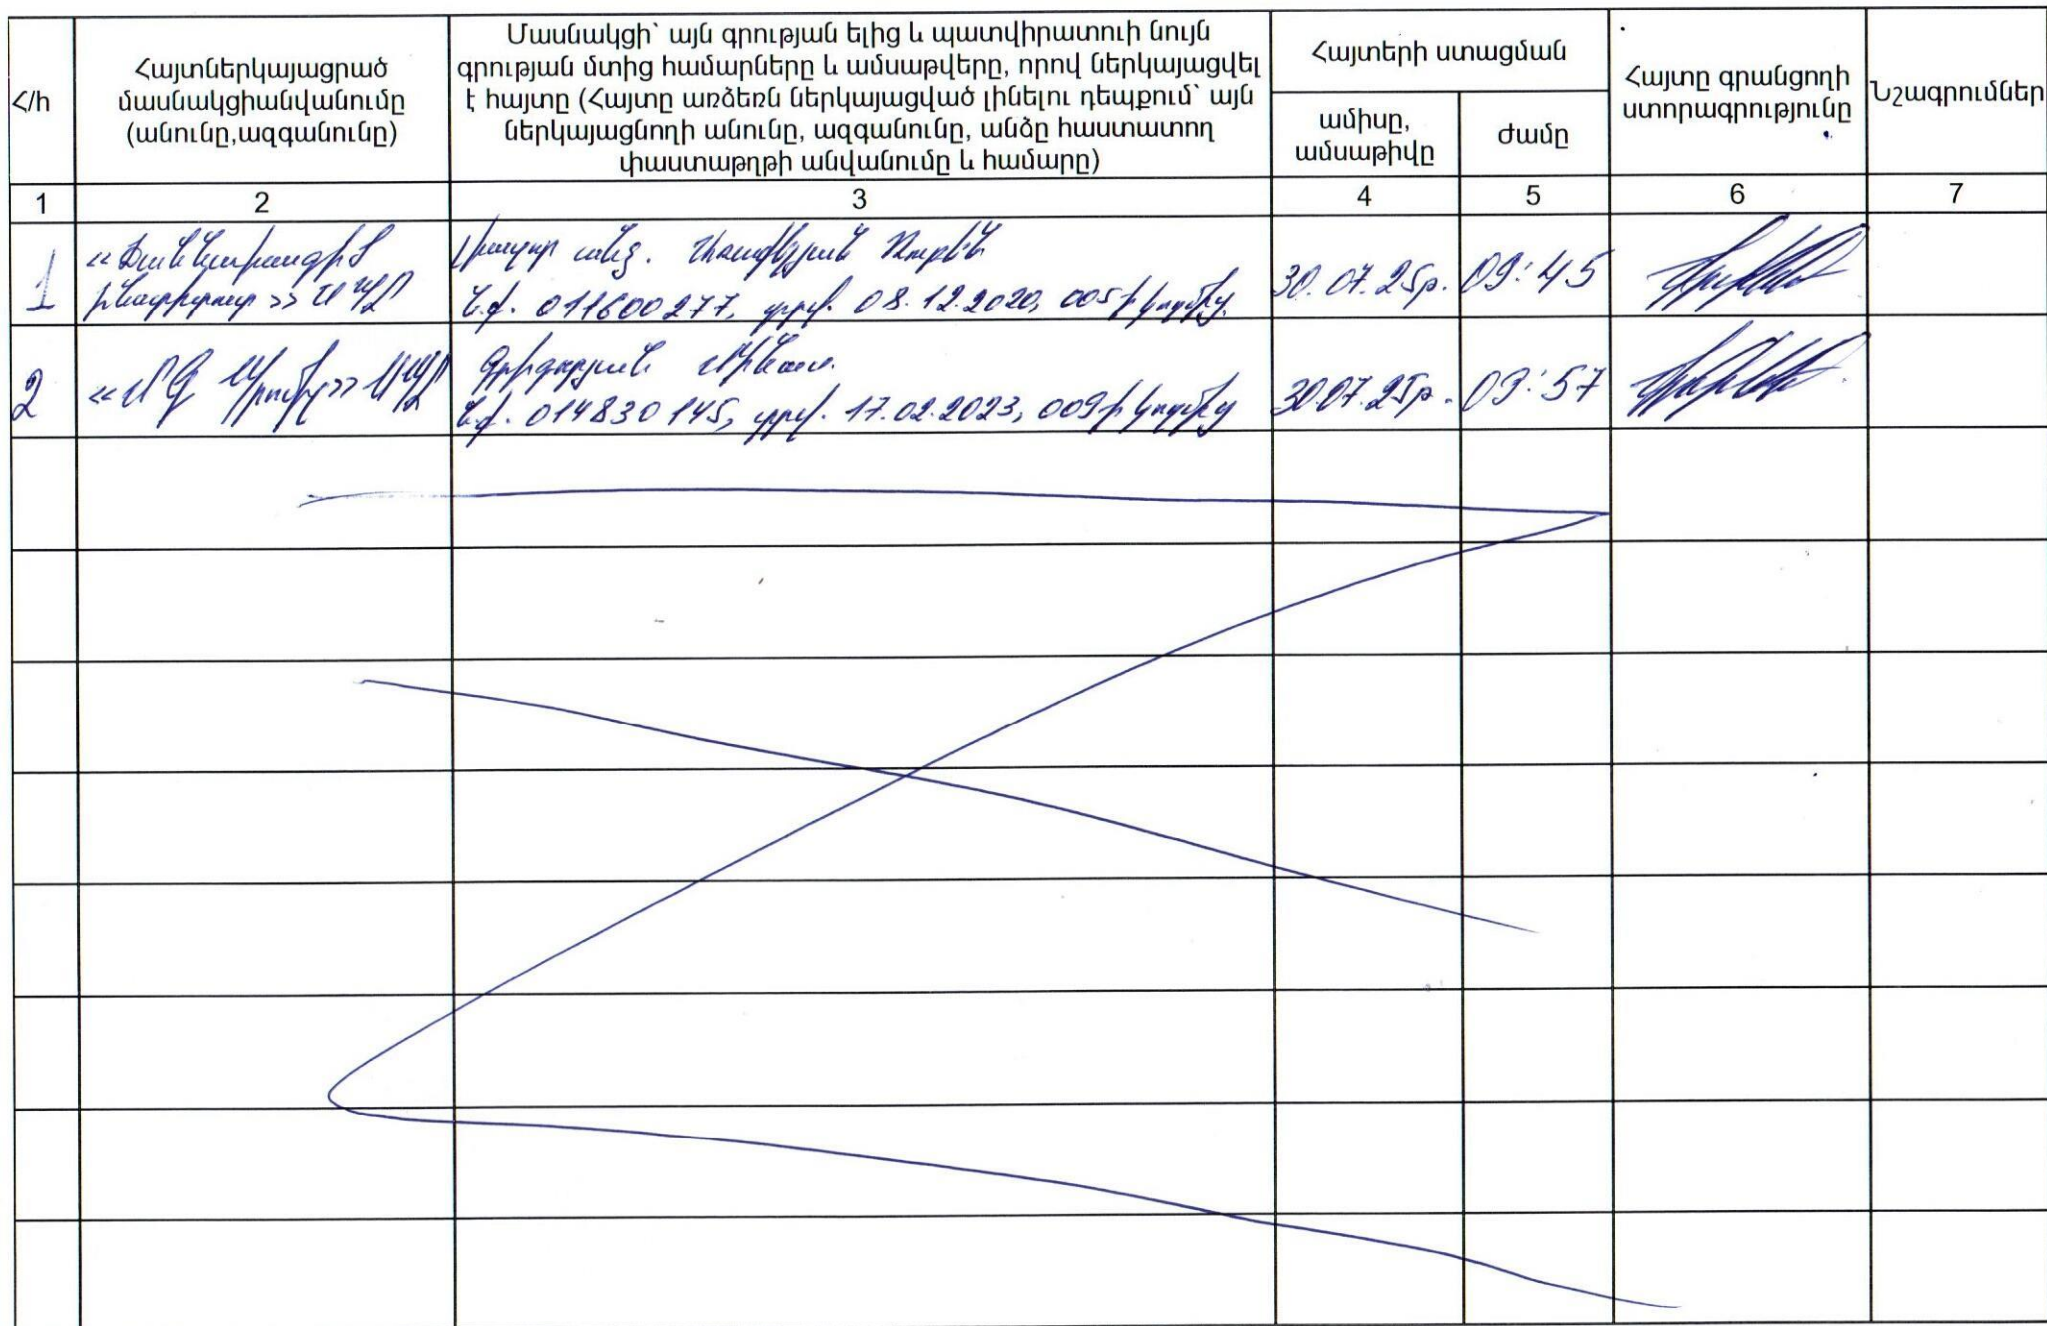 Հ/հ
Հայտներկայացրած
մասնակցիանվանումը
(անունը,ազգանունը)
Մասնակցի՝ այն գրության ելից և պատվիրատուի նույն
գրության մտից համարները և ամսաթվերը, որով ներկայացվել
է հայտը (Հայտը առձեռն ներկայացված լինելու դեպքում՝ այն
ներկայացնողի անունը, ազգանունը, անձը հաստատող
փաստաթղթի անվանումը և համարը)
Հայտերի ստացման
ամիսը,
ամսաթիվը
ժամը
Հայտը գրանցողի
ստորագրությունը
Նշագրումներ
1 2 3 4 5 6 7
1
ինստիտուտ>> ՍՊԸ
Լիազոր անձ.
Ն.ք. 011600277, տրվ. 08.12.2020, 005-ի կողմից
30.07.25թ. 09:45
2 <<ՄԳ ՍՊԸ
Գրիգորյան
Ն.ք. 014830145, տրվ. 17.02.2023, 009-ի կողմից
30.07.25թ. 09:57